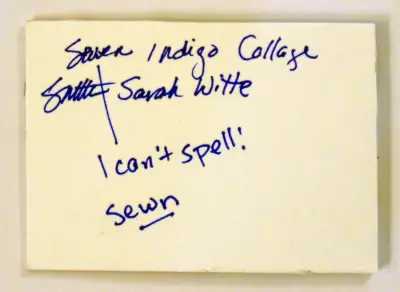 Sewen Indigo Collage
Sarah Witte
I can't spell!
sewn